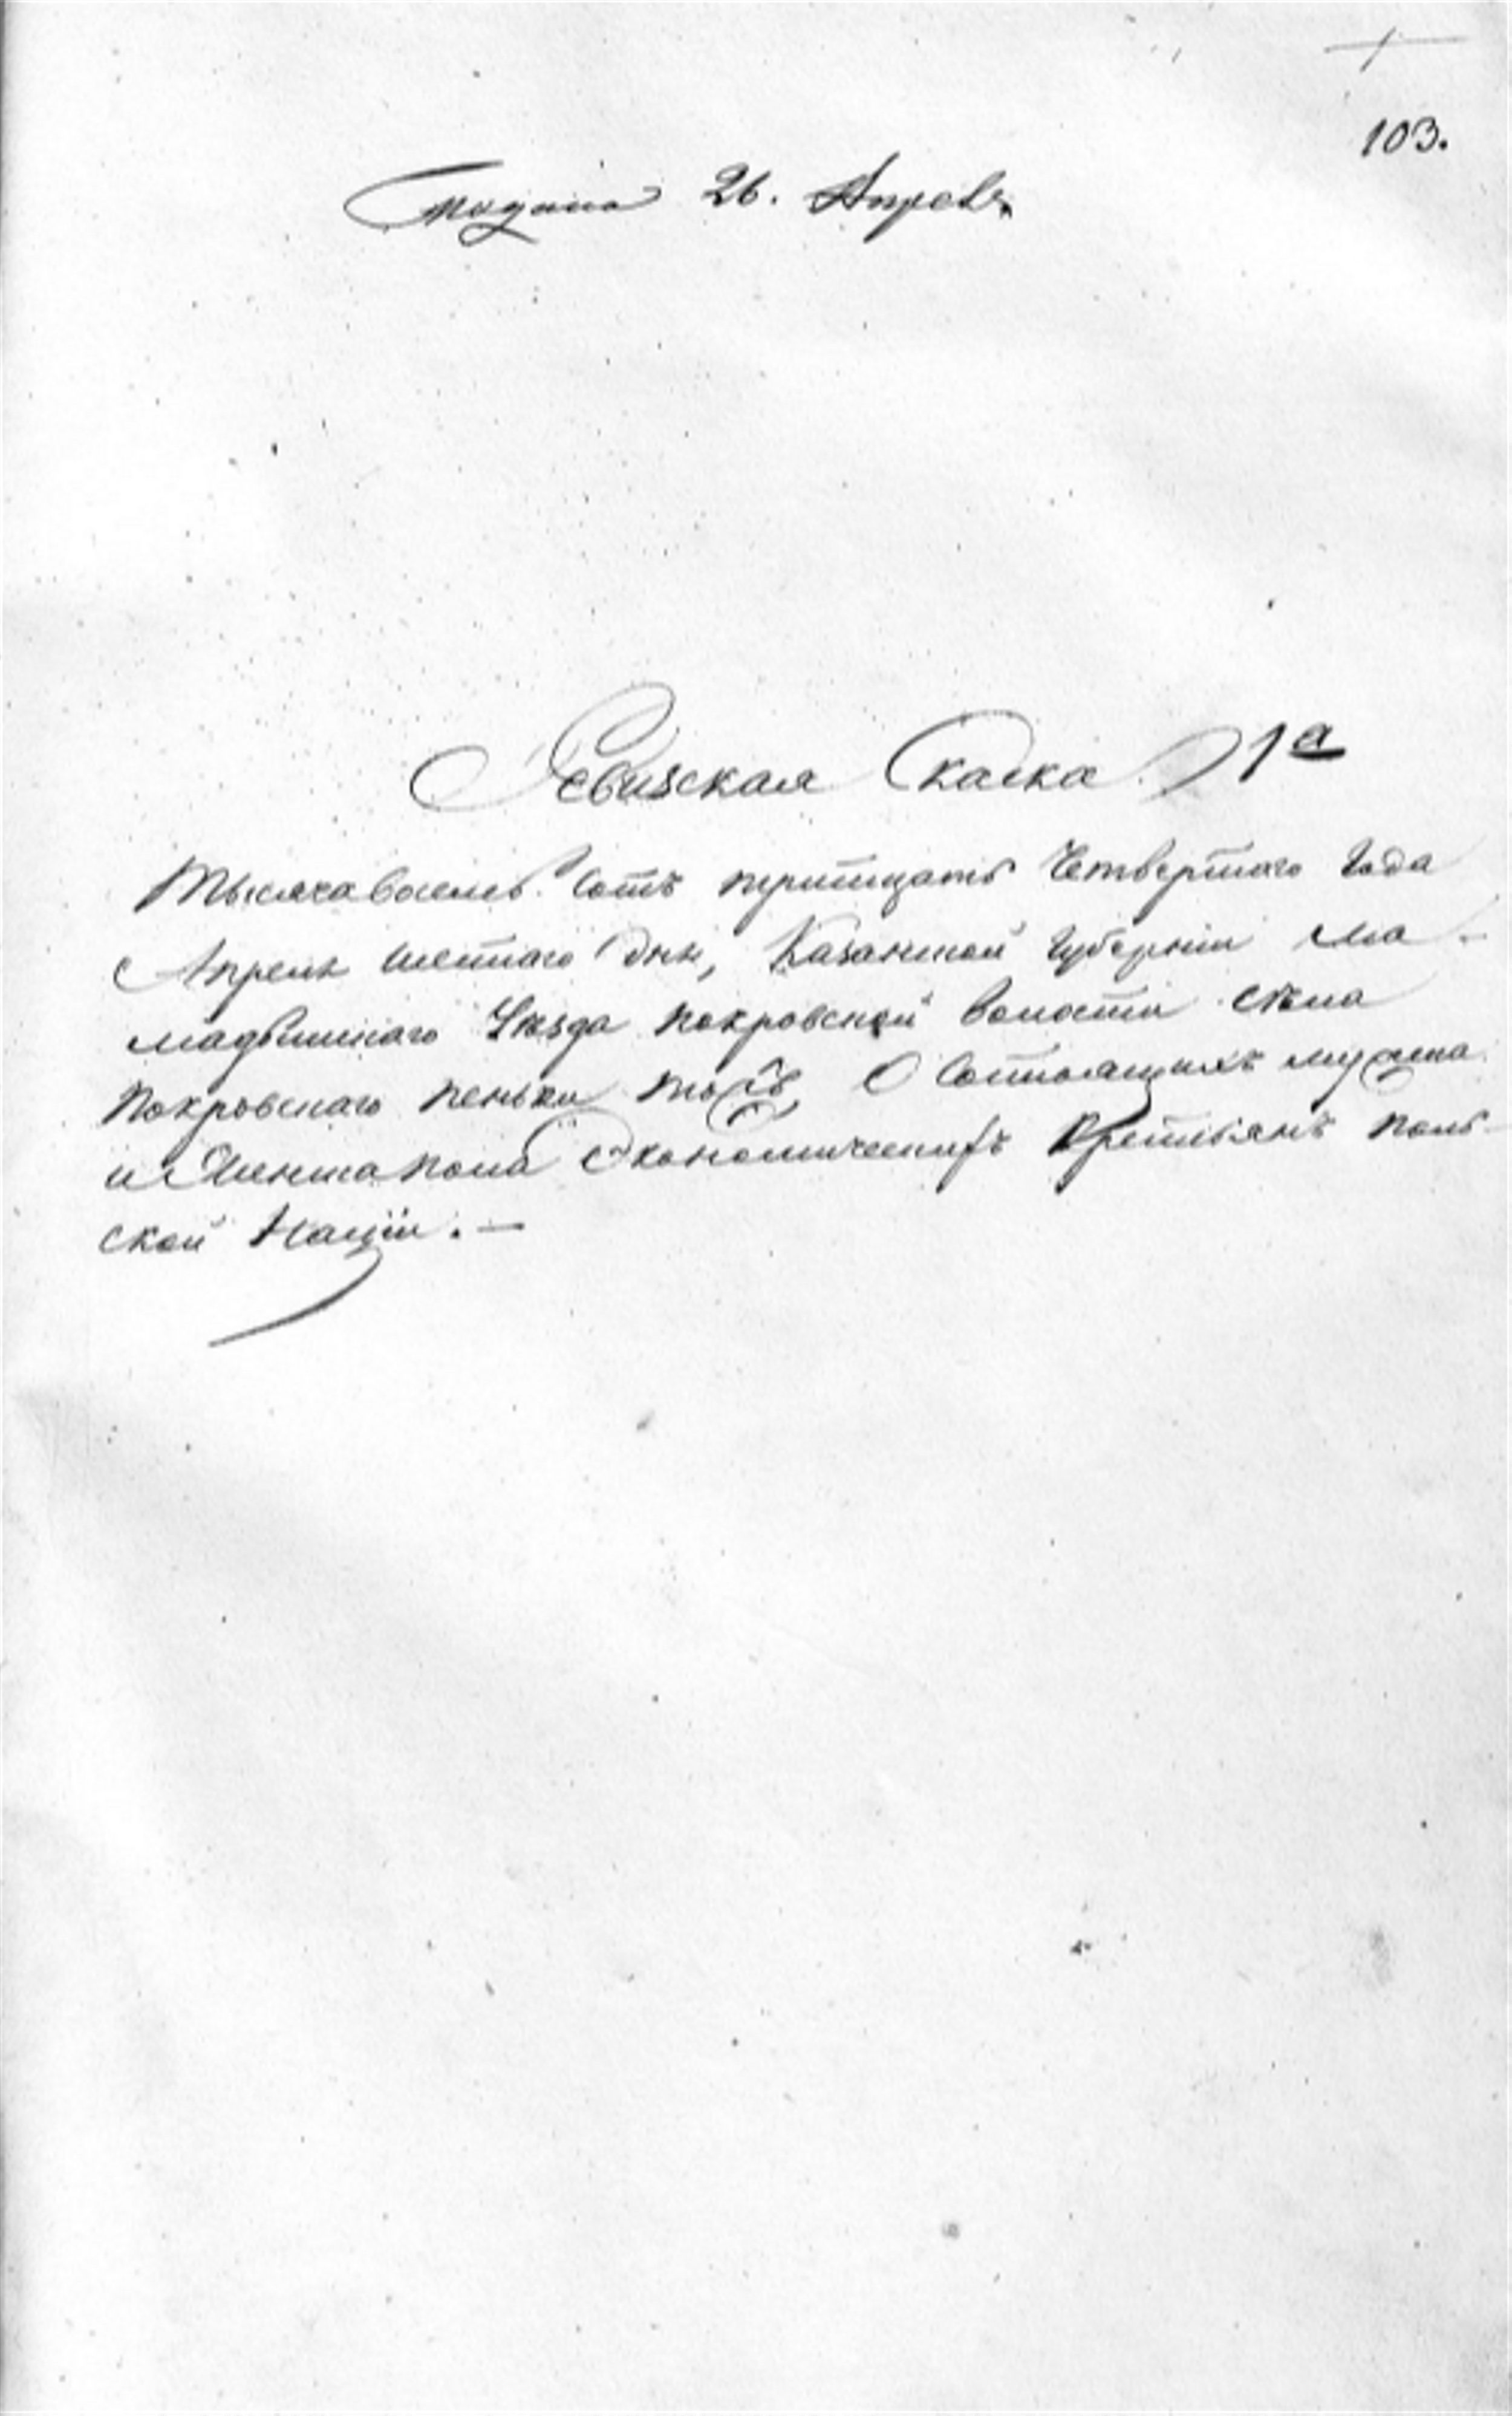 103.
Подана 26. Апреля
Ревизская Скаска 1а
Тысяча восемь Сотъ тритцать Четвертаго Года
Апреля шестаго дня, Казанской Губерніи ма-
мадышскаго Уѣзда покровской волости села
покровскаго пеньки тожъ, О Состоящихъ мужеска
и Женска пола Экономическихъ Крестьянъ поль-
ской Націи. —